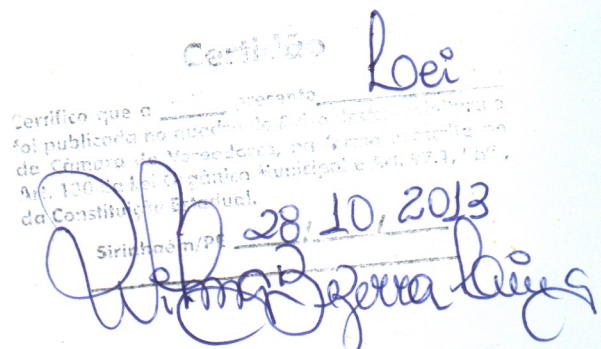 Certidão
Certifico que a ______ presente Loei
foi publicada no quadro de Aviso desta Prefeitura e
da Câmara de Vereadores, na forma prescrita no
Art. 130 da Lei Orgânica Municipal e Art. 97.1, "b",
da Constituição Estadual.
Sirinhaém/PE 28, 10, 2013
Bezerra